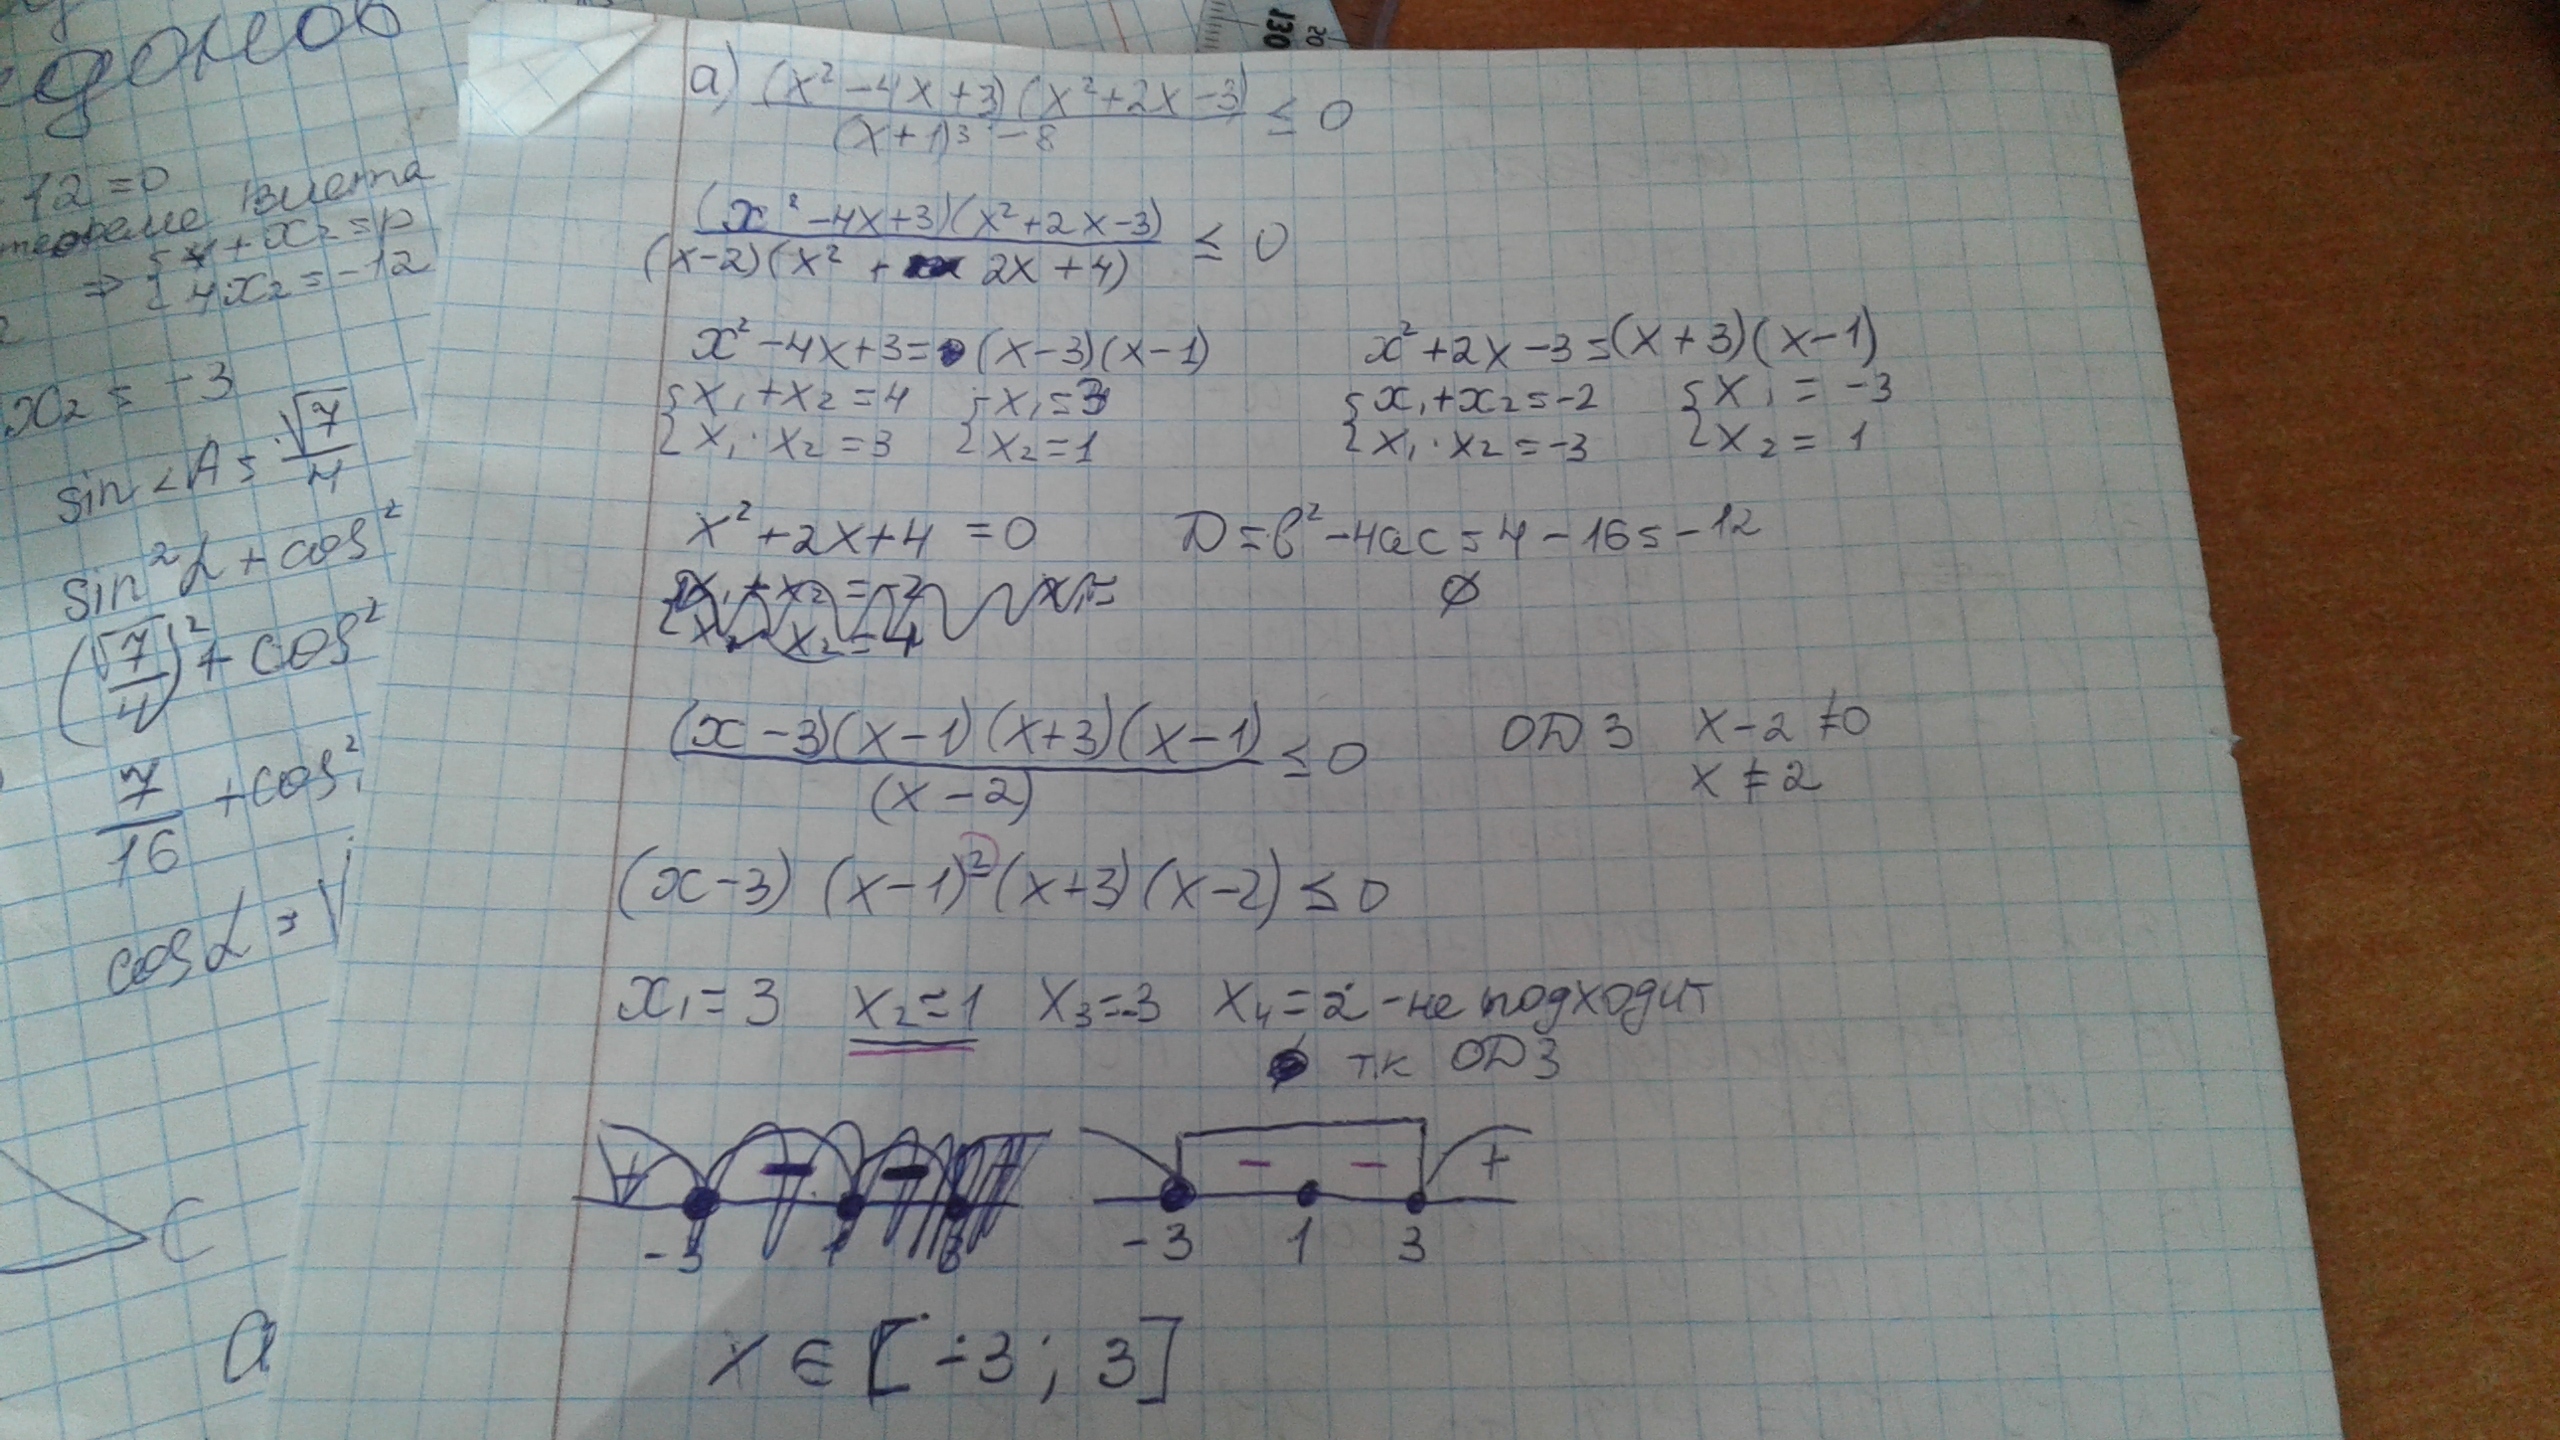 12 = 0
теореме Виета
x₂ = p
⇒ 4x₂ = -12
x₂ = -3
sin ∠A = √7/4
sin²α + cos²
(√7/4)² + cos²
7/16 + cos²
cos α = √
C
а) (x² - 4x + 3)(x² + 2x - 3) / (x+1)³ - 8 ≤ 0
(x² - 4x + 3)(x² + 2x - 3) / (x-2)(x² + 2x + 4) ≤ 0
x² - 4x + 3 = (x-3)(x-1) x² + 2x - 3 = (x+3)(x-1)
{ x₁ + x₂ = 4 { x₁ = 3 { x₁ + x₂ = -2 { x₁ = -3
{ x₁ · x₂ = 3 { x₂ = 1 { x₁ · x₂ = -3 { x₂ = 1
x² + 2x + 4 = 0 D = b² - 4ac = 4 - 16 = -12
x₁ + x₂ = -2 x₁ = ∅
x₁ · x₂ = 4
(x-3)(x-1)(x+3)(x-1) / (x-2) ≤ 0 ОДЗ x - 2 ≠ 0
x ≠ 2
(x-3)(x-1)²(x+3)(x-2) ≤ 0
x₁ = 3 x₂ = 1 x₃ = -3 x₄ = 2 - не подходит
т.к ОДЗ
+ - - + - - +
-3 1 3 -3 1 3
x ∈ [-3; 3]
130
20